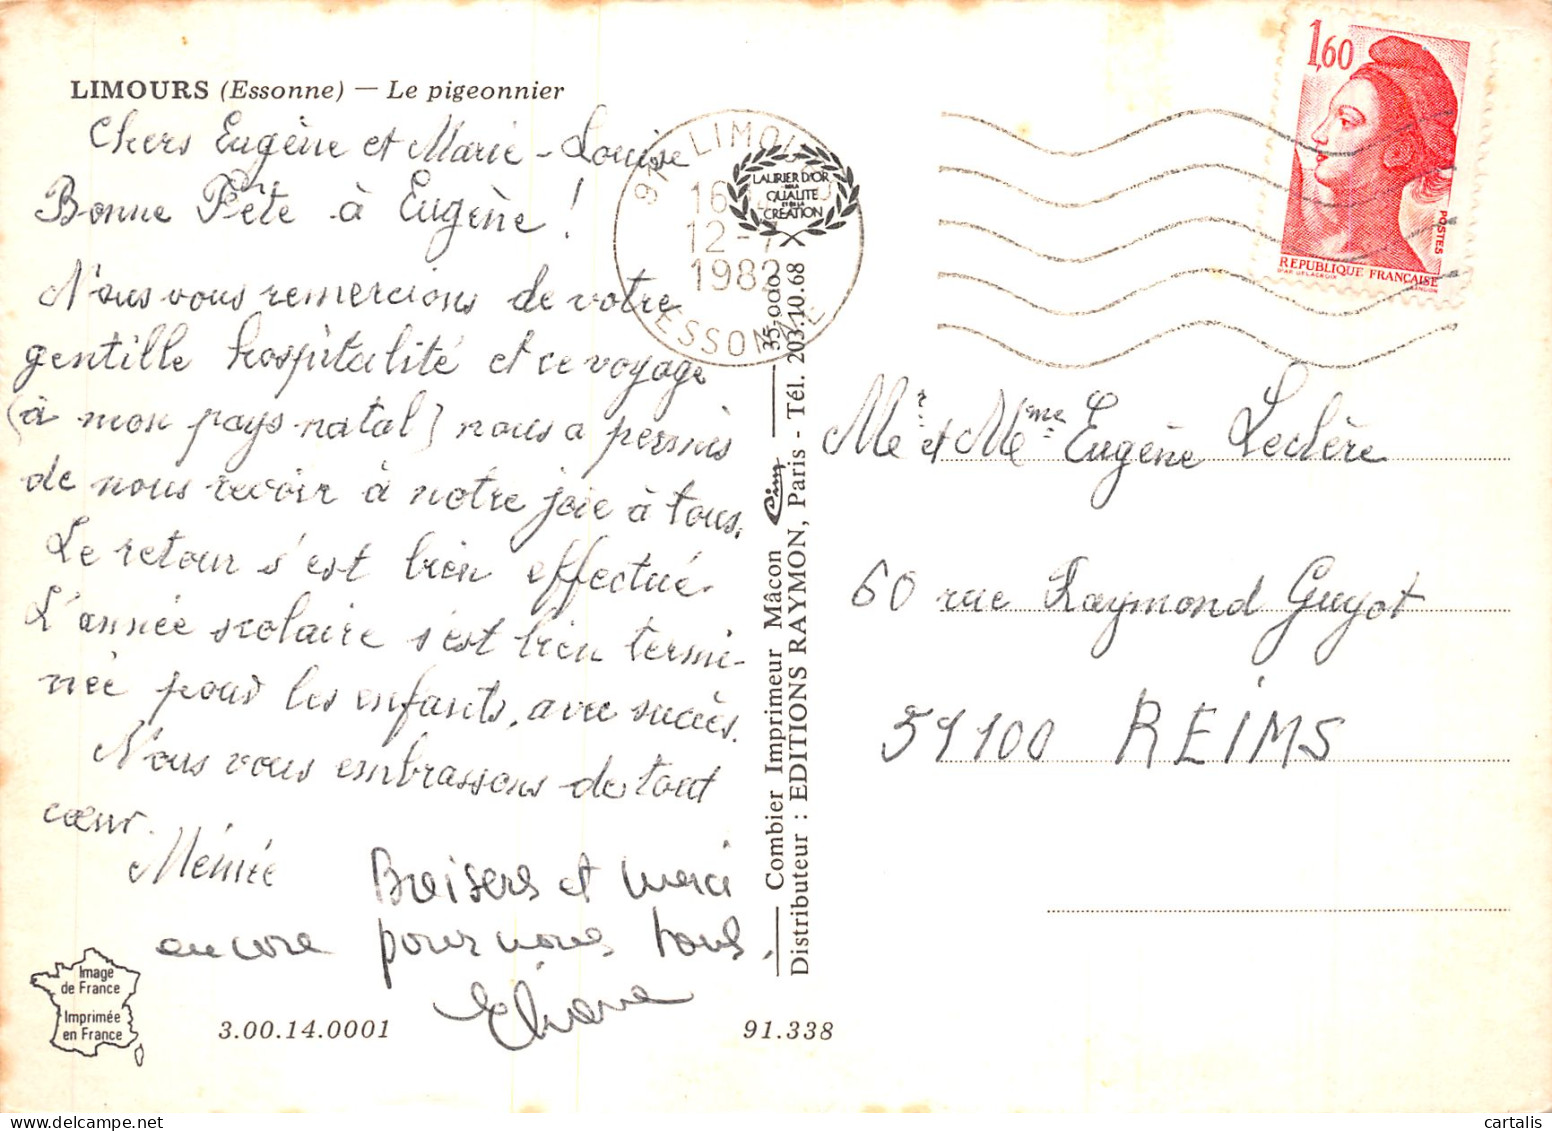 LIMOURS (Essonne) — Le pigeonnier
Chers Eugène et Marie-Louise
Bonne Fête à Eugène !
Nous vous remercions de votre
gentille hospitalité et ce voyage
(à mon pays natal) nous a permis
de nous revoir à notre joie à tous.
Le retour s'est bien effectué.
L'année scolaire s'est bien termi-
née pour les enfants, avec succès.
Nous vous embrassons de tout
cœur.
Mémée
Baisers et merci
encore pour nous tous.
Eliane
Image
de France
Imprimée
en France
3.00.14.0001
91.338
91 LIMOURS
16
12-7
1982
ESSONNE
LAURIER D'OR
DE LA
QUALITÉ
ET DE LA
CRÉATION
Combier Imprimeur Mâcon Cim 35.000
Distributeur : EDITIONS RAYMON, Paris - Tél. 203.10.68
1,60
POSTES
REPUBLIQUE FRANÇAISE
D'AP. DELACROIX GANDON
Mr et Mme Eugène Leclère
60 rue Raymond Guyot
51100 REIMS
cartalis